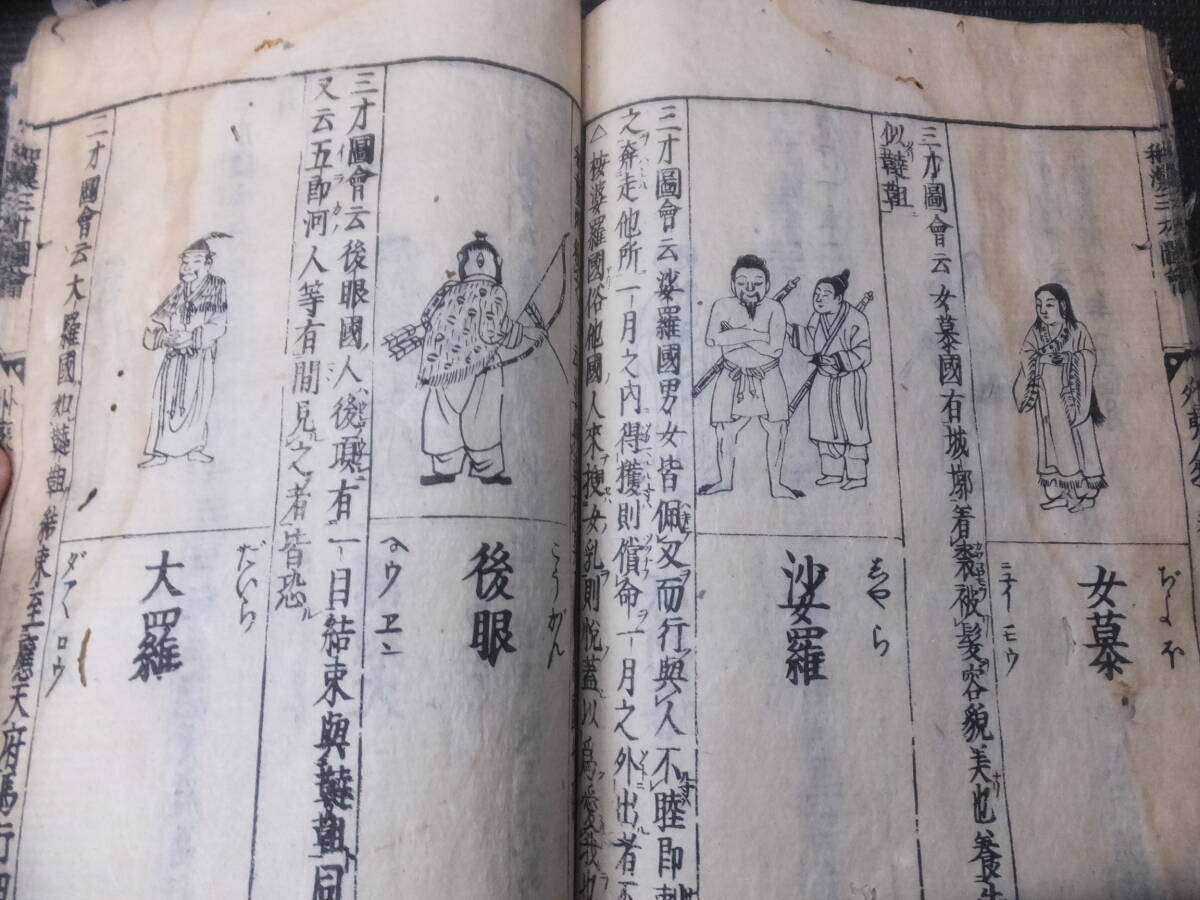 和漢三才圖會
女慕
ぢよぼ
ニイモウ
三才圖會云女慕國有城廓着裘被髮容貌美也養生
似韃靼
娑羅
しやら
三才圖會云娑羅國男女皆佩刄而行與人不睦即刺
之奔走他所一月之内得獲則償命一月之外出者不
△娑羅國俗他國人來捜女乳則悅蓋以爲愛我也
後眼
こうがん
ヘウヱン
三才圖會云後眼國人後項有一目結束與韃靼同
又云五郎河人等有間見之者皆恐
大羅
だいら
ダアロウ
三才圖會云大羅國如韃靼結束至應天府馬行四
和漢三才圖會